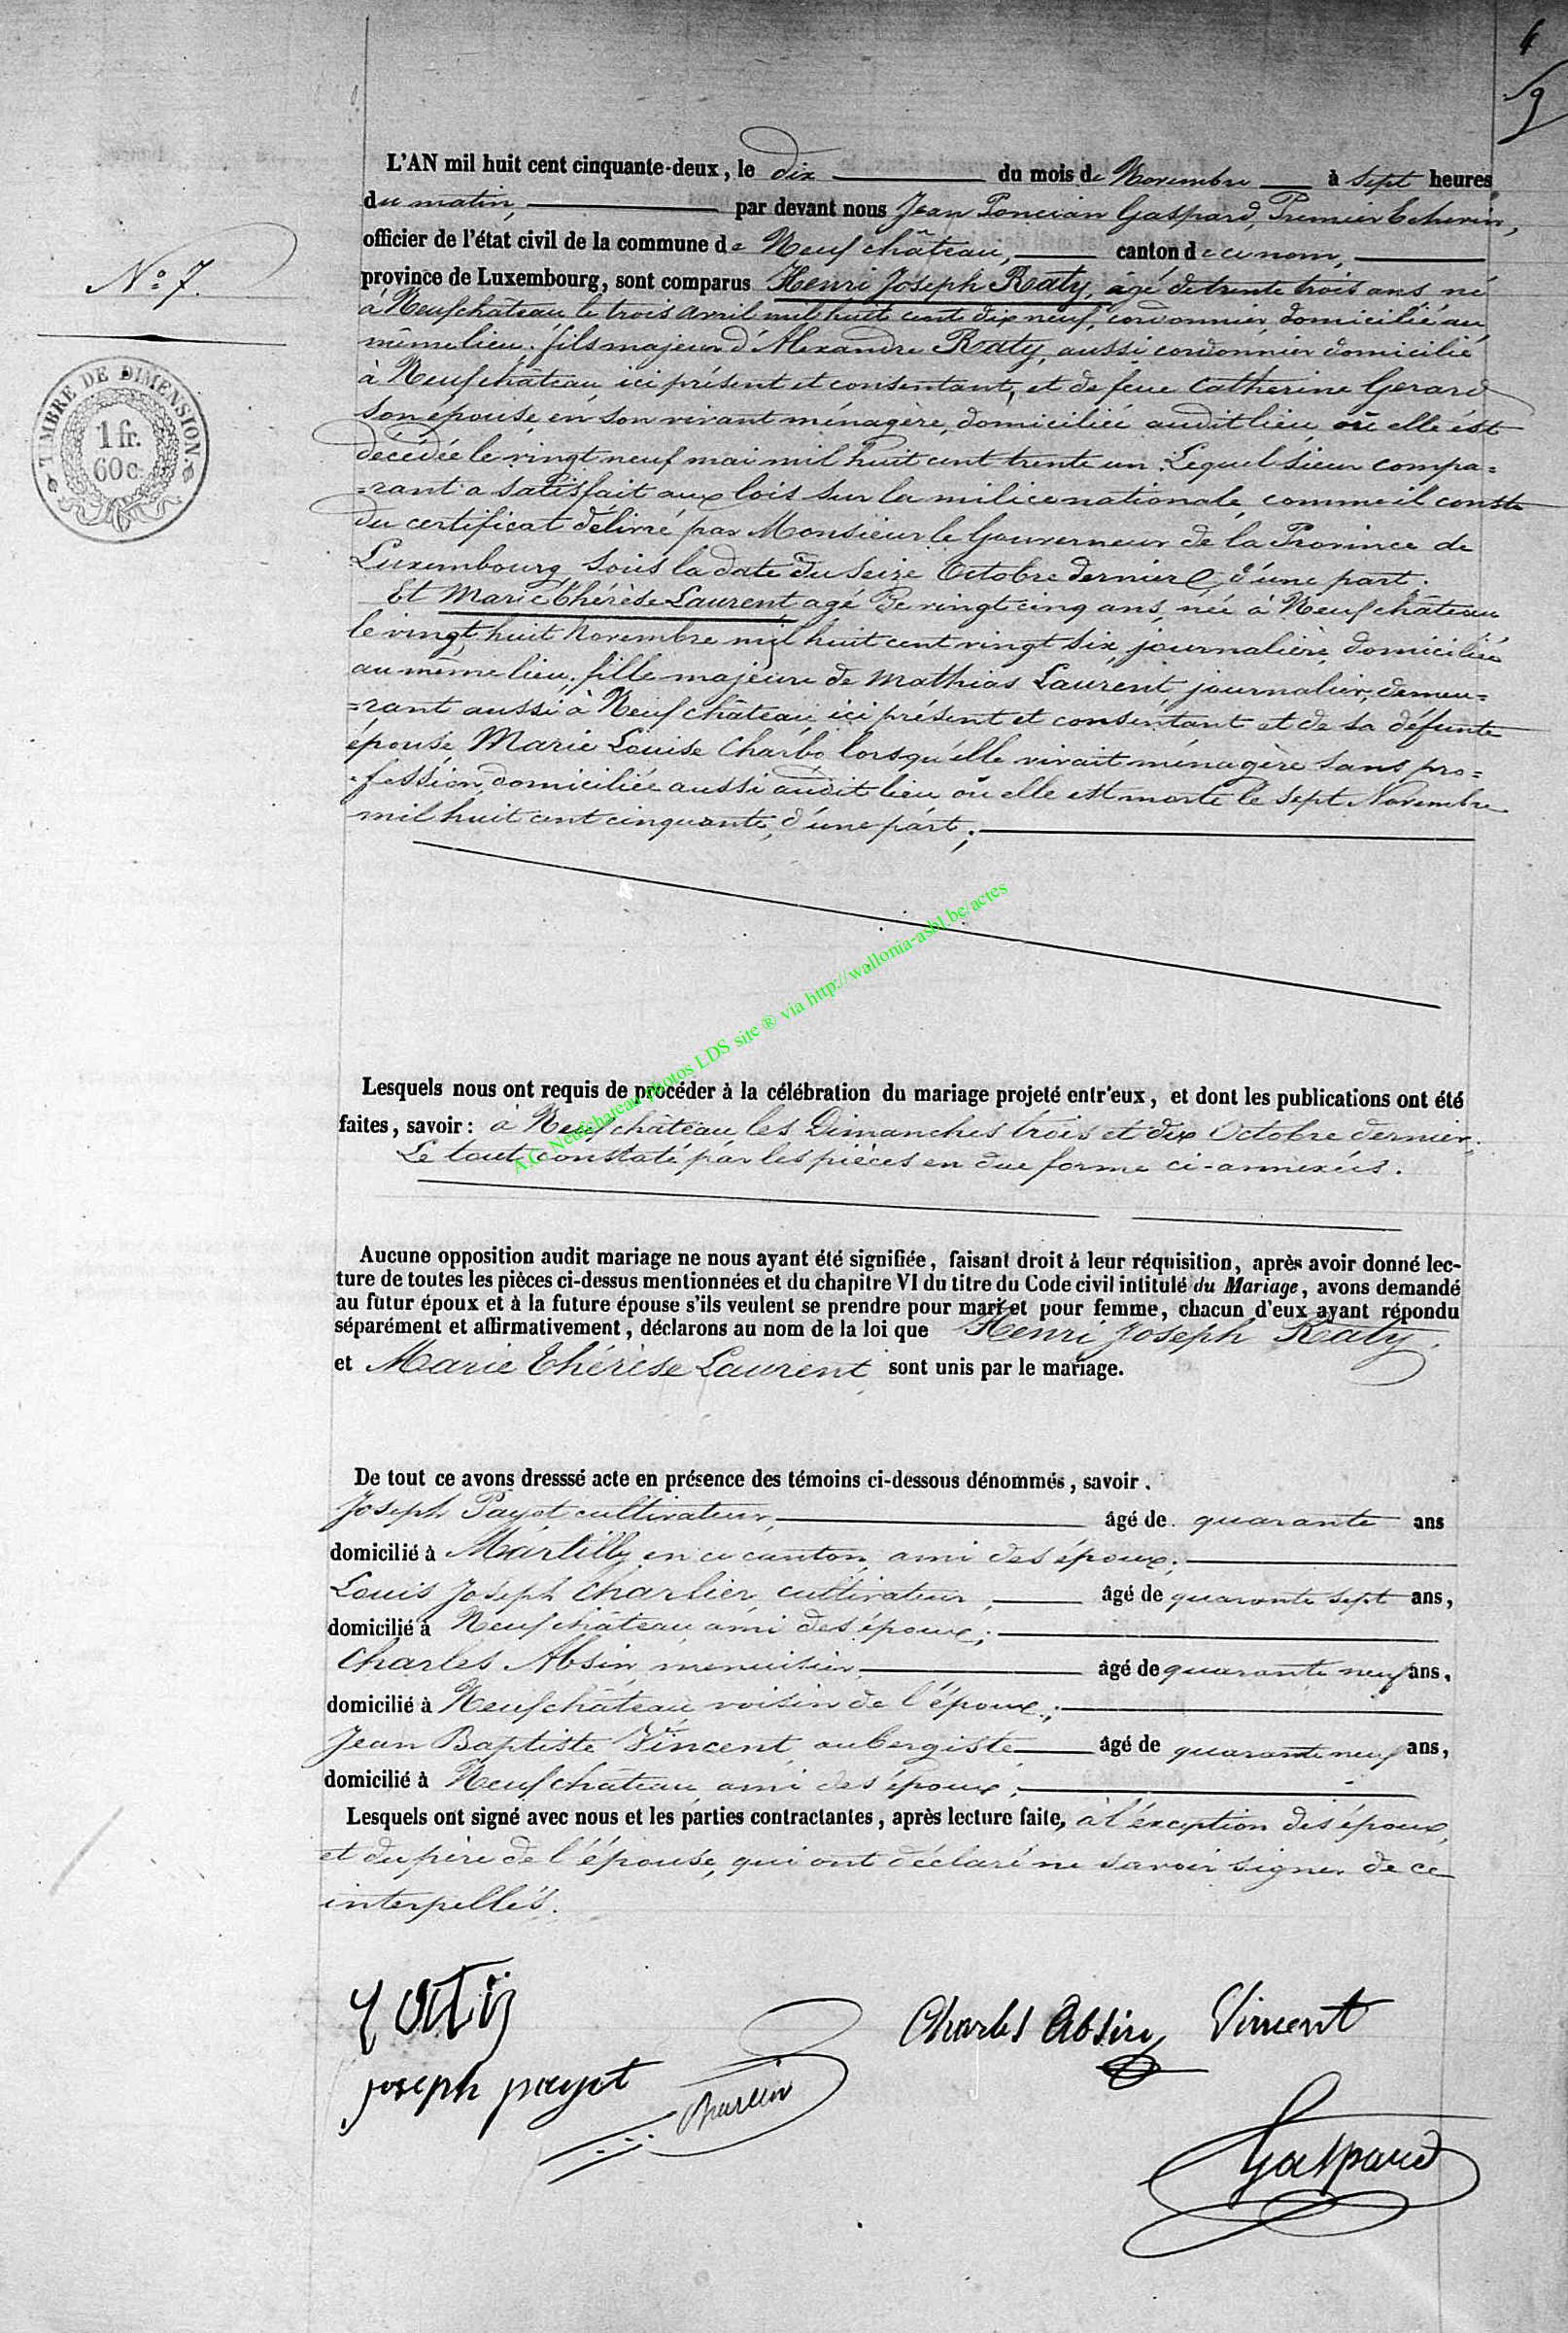 4
9
L'AN mil huit cent cinquante-deux, le dix du mois de Novembre à sept heures
du matin, par devant nous Jean Poncian Gaspard, Premier Echevin,
officier de l'état civil de la commune de Neufchâteau, canton de ce nom,
province de Luxembourg, sont comparus Henri Joseph Raty, âgé de trente trois ans né
à Neufchâteau le trois avril mil huit cent dix neuf, cordonnier, domicilié au
même lieu; fils majeur d'Alexandre Raty, aussi cordonnier domicilié
à Neufchâteau ici présent et consentant, et de feue Catherine Gerard
son épouse, en son vivant ménagère, domiciliée audit lieu où elle est
décédée le vingt neuf mai mil huit cent trente un. Lequel sieur compa=
=rant a satisfait aux lois sur la milice nationale, comme il conste
du certificat délivré par Monsieur le Gouverneur de la Province de
Luxembourg sous la date du seize Octobre dernier, d'une part.
Et Marie Thérèse Laurent, agé de vingt cinq ans, née à Neufchâteau
le vingt huit Novembre mil huit cent vingt six, journalière, domiciliée
au même lieu; fille majeure de Mathias Laurent journalier, demeu=
=rant aussi à Neufchâteau ici présent et consentant et de sa défunte
épouse Marie Louise Charbo lorsqu'elle vivait ménagère sans pro=
=fession, domiciliée aussi audit lieu où elle est morte le sept Novembre
mil huit cent cinquante, d'une part;
N.o 7.
TIMBRE DE DIMENSION
1 fr.
60 c.
A.C. Neufchateau Photos LDS site ® via http://wallonia-asbl.be/actes
Lesquels nous ont requis de procéder à la célébration du mariage projeté entr'eux, et dont les publications ont été
faites, savoir: à Neufchâteau les Dimanches trois et dix Octobre dernier.
Le tout constaté par les pièces en due forme ci-annexées.
Aucune opposition audit mariage ne nous ayant été signifiée, faisant droit à leur réquisition, après avoir donné lec-
ture de toutes les pièces ci-dessus mentionnées et du chapitre VI du titre du Code civil intitulé du Mariage, avons demandé
au futur époux et à la future épouse s'ils veulent se prendre pour mari et pour femme, chacun d'eux ayant répondu
séparément et affirmativement, déclarons au nom de la loi que Henri Joseph Raty,
et Marie Thérèse Laurent sont unis par le mariage.
De tout ce avons dresssé acte en présence des témoins ci-dessous dénommés, savoir.
Joseph Payot cultivateur, âgé de quarante ans
domicilié à Martilly en ce canton, ami des époux;
Louis Joseph Charlier, cultivateur, âgé de quarante sept ans,
domicilié à Neufchâteau, ami des époux;
Charles Absin, menuisier, âgé de quarante neuf ans,
domicilié à Neufchâteau voisin de l'époux;
Jean Baptiste Vincent aubergiste âgé de quarante neuf ans,
domicilié à Neufchâteau ami des époux;
Lesquels ont signé avec nous et les parties contractantes, après lecture faite, à l'exception des époux,
et du père de l'épouse, qui ont déclaré ne savoir signer de ce
interpellés.
Charles Absin Vincent
joseph payot
Gaspard